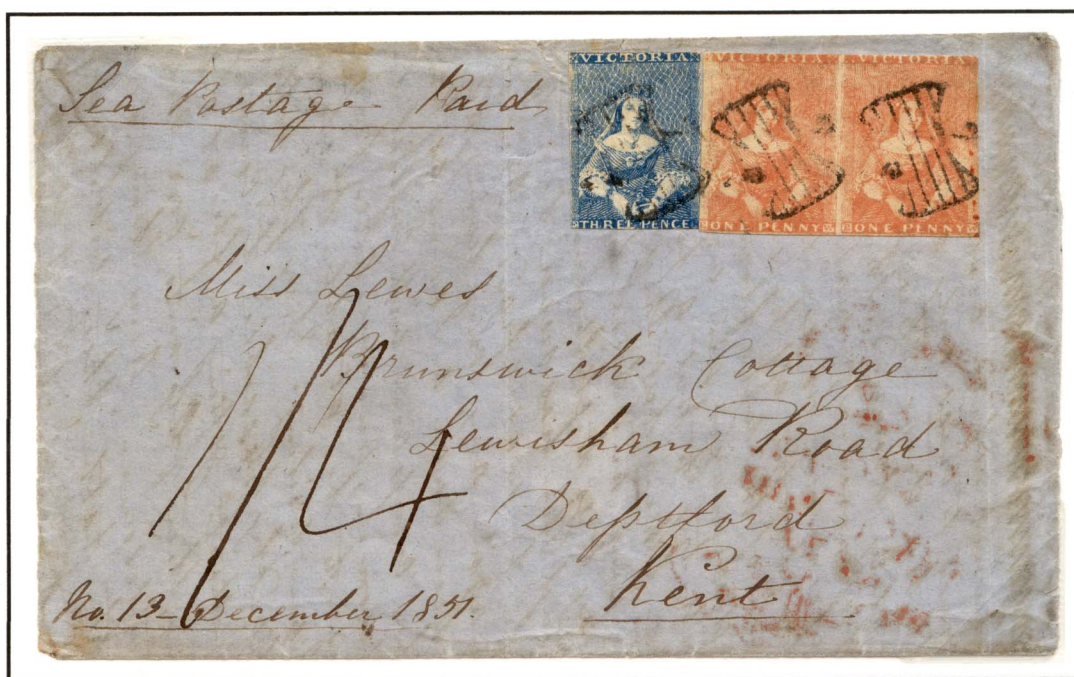 Sea Postage Paid
VICTORIA VICTORIA VICTORIA
THREE PENCE ONE PENNY ONE PENNY
Miss Lewes
Brunswick Cottage
Lewisham Road
Deptford
Kent
1/4
No. 13 - December 1851.